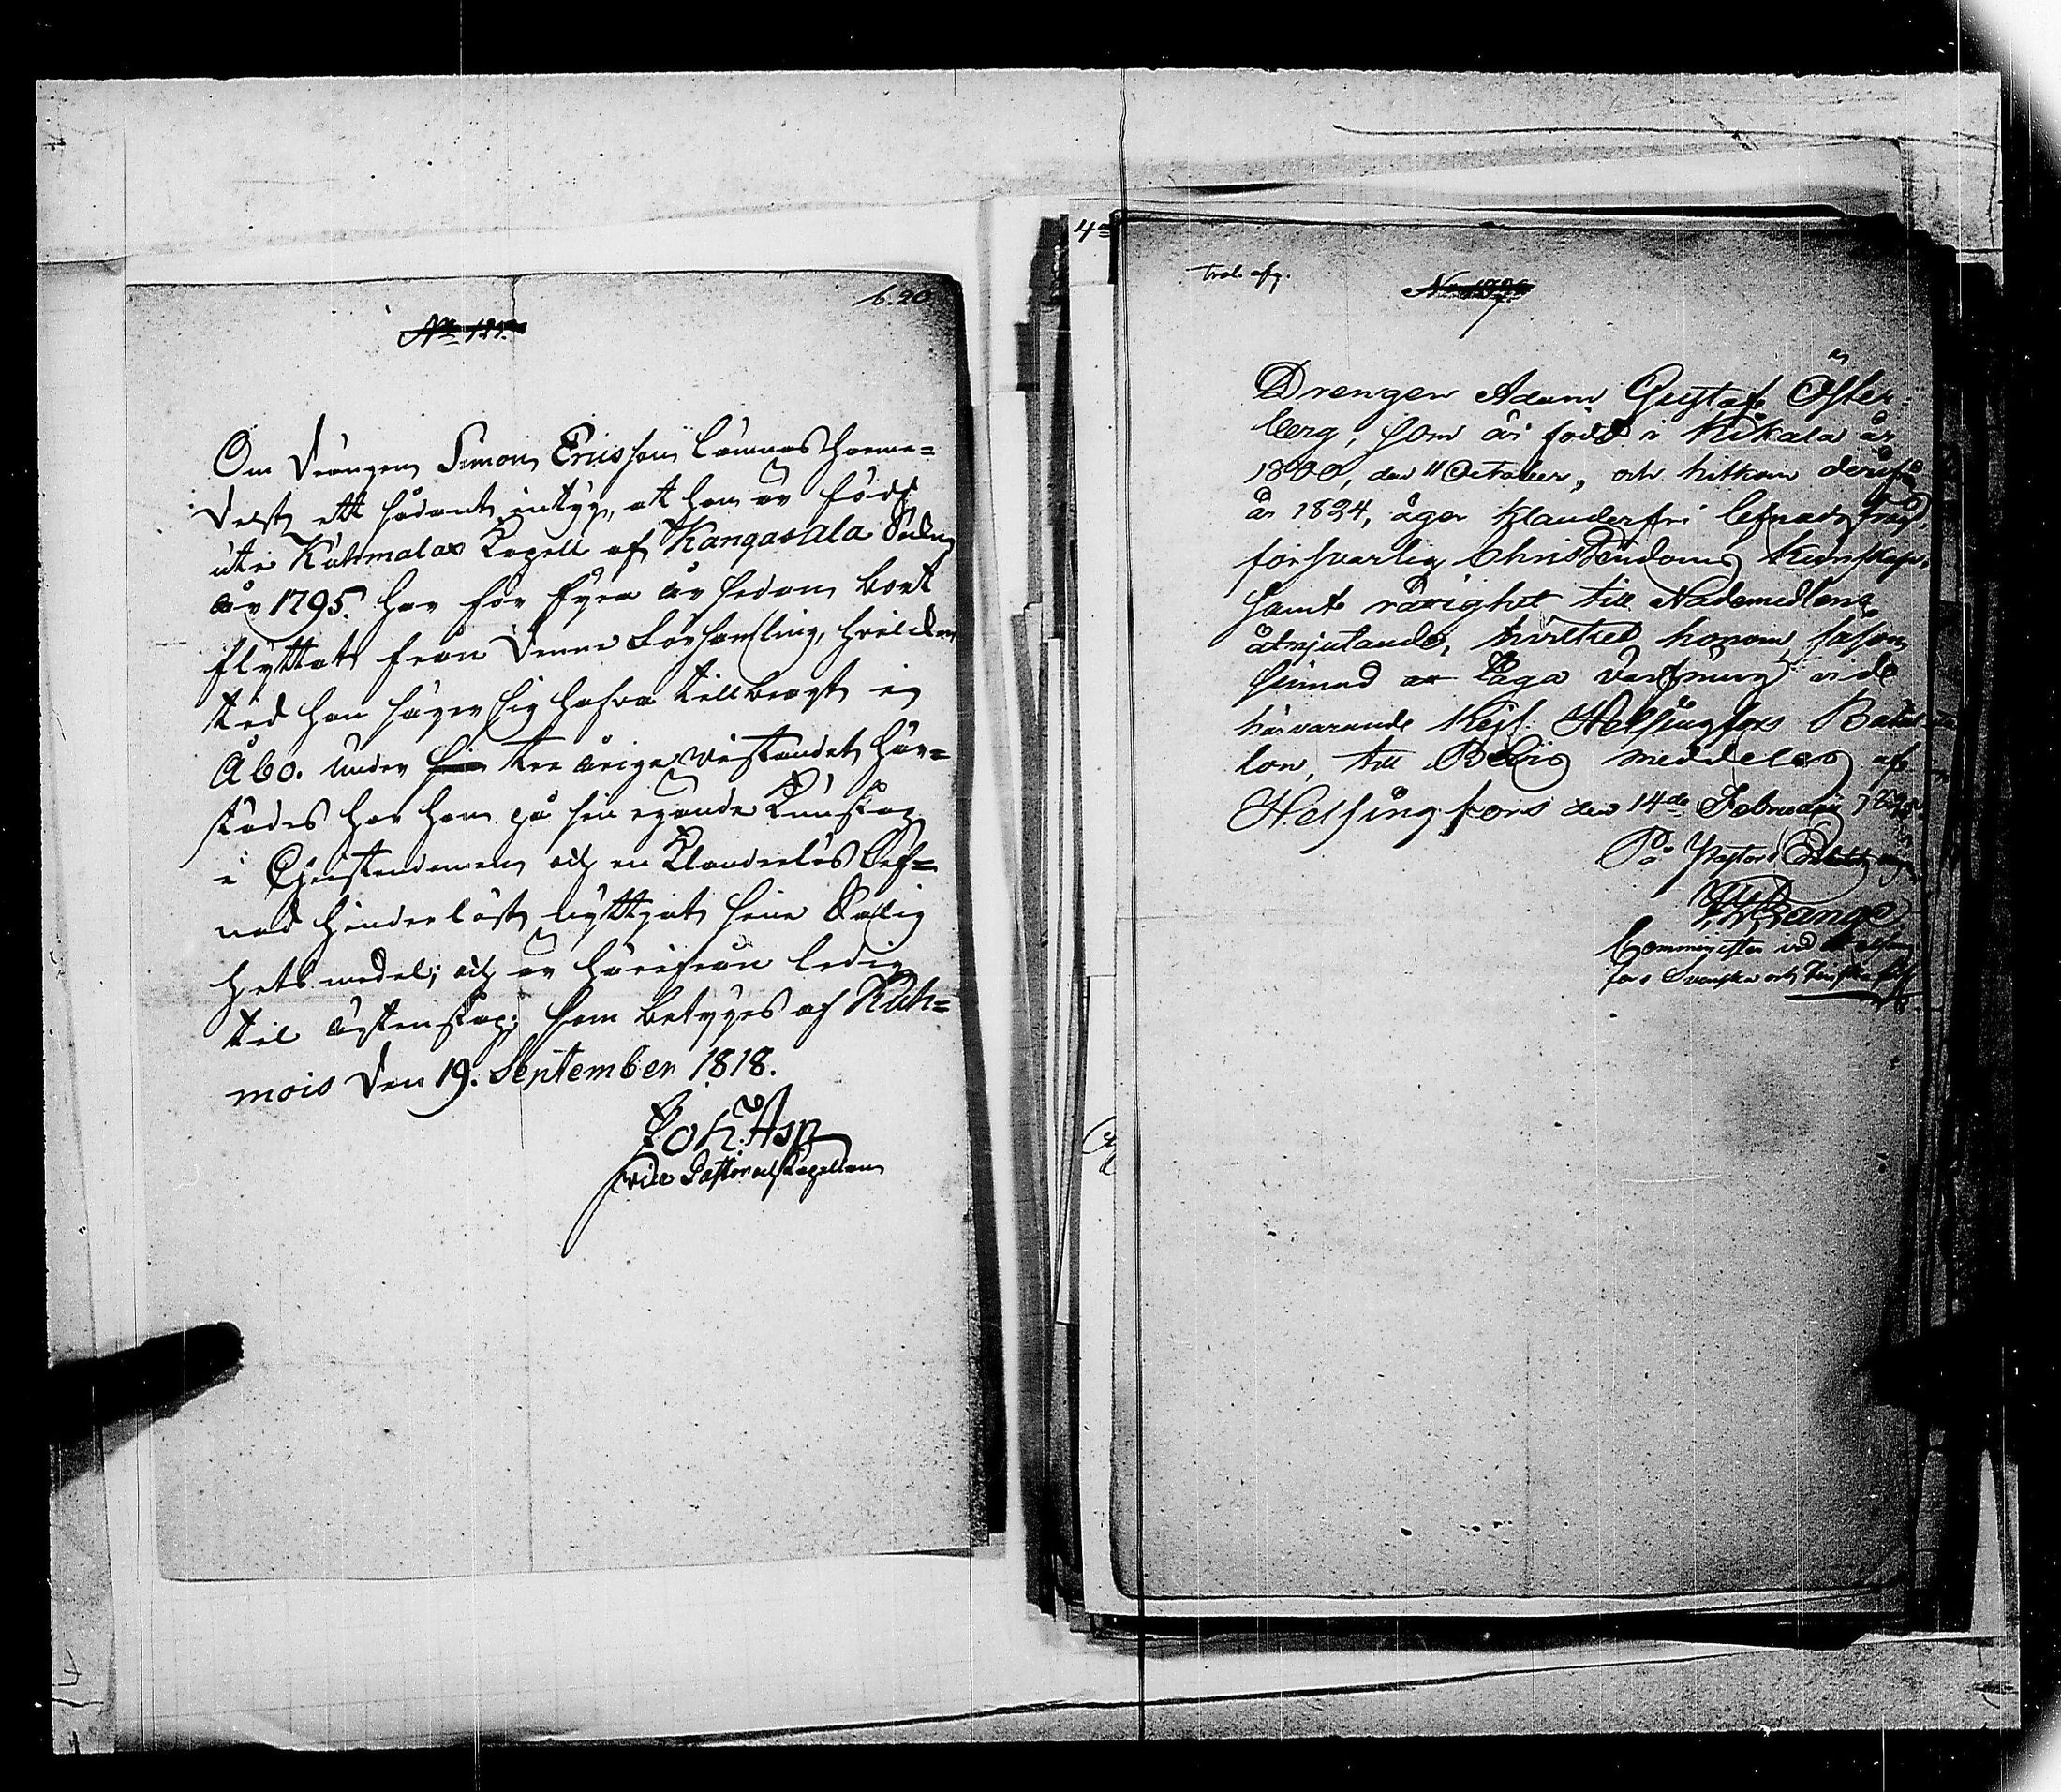 b. 20
No 121.
Om Drängen Simon Ericsson lämnas härme-
delst ett sådant intyg, at han är född
uti Kuhmalax Capell af Kangasala Sokn
år 1795. har för fyra år sedan bort
flyttat från denna Församling, hvilken
tid han säger sig hafva tillbragt i
Åbo. Under tre åriga vistandet här-
städes har han på sin egande Kunskap
i Christendomen och en Klanderlös Lef-
nad hinderlöst nyttjat sine Salig
hets medel; och är härifrån ledig
til Ägtenskap; som betyges af Kuh-
mois den 19. September 1818.
Joh. Asp
vice Pastor och Capellan
4
Drengen Adam Gustaf Öster-
berg, som är född i Kikala år
1800, den 11 October, och hitkom derifrån
år 1824, äger klanderfri lefnads frägd,
försvarlig Christendoms kunskap,
samt rättighet till Nademedlens
åtnjutande, hvilket honom, såsom
sinnad at taga Värfning vid
härvarande Kejs. Helsingfors Batal
lon, till Bevis meddelas af
Helsingfors den 14de Februarii
På Pastors
Comminister vid Helsing
fors Svenska och Finska